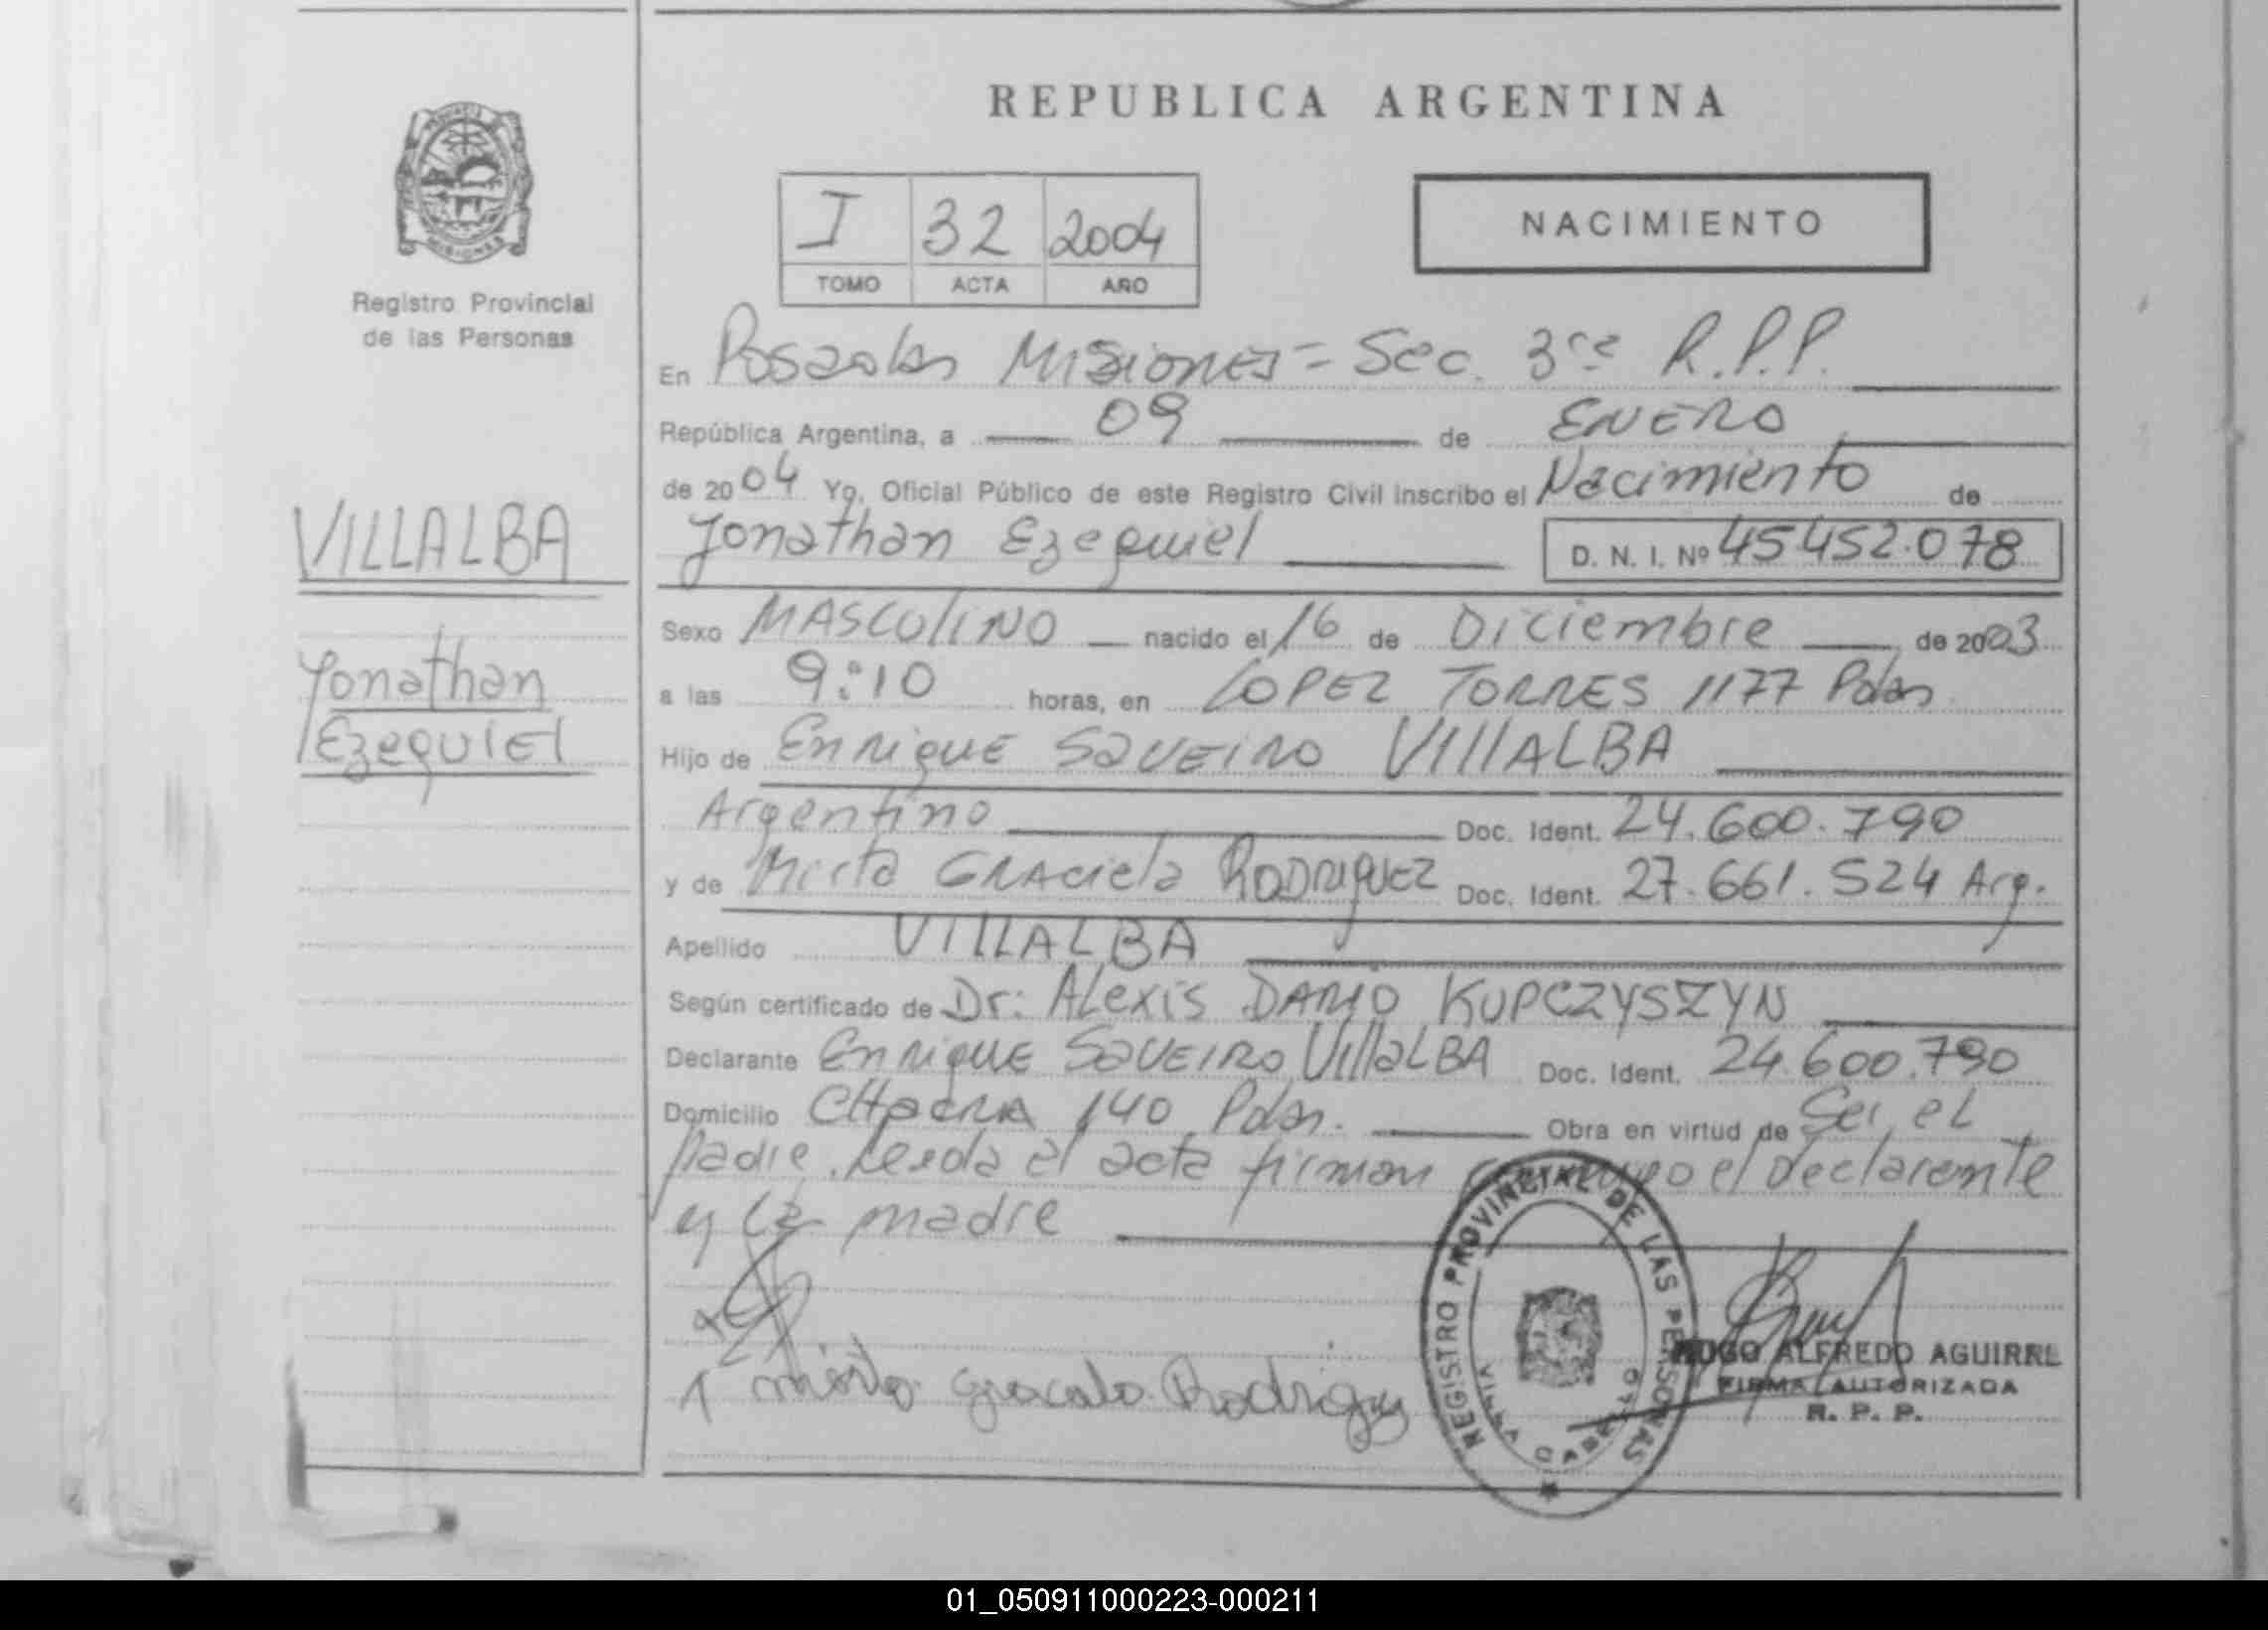 REPUBLICA ARGENTINA
PROVINCIA DE MISIONES
Registro Provincial
de las Personas
I 32 2004
TOMO ACTA AÑO
NACIMIENTO
VILLALBA
Yonathan
Ezequiel
En Posadas Misiones = Sec. 3ra R.P.P.
República Argentina, a 09 de ENERO
de 2004 Yo, Oficial Público de este Registro Civil inscribo el Nacimiento de
Yonathan Ezequiel D. N. I. Nº 45452.078
Sexo MASCULINO nacido el 16 de Diciembre de 2003
a las 9:10 horas, en LOPEZ TORRES 1177 Pdas
Hijo de Enrique SAVEIRO VILLALBA
Argentino Doc. Ident. 24.600.790
y de Mirta GRACIELA RODRIGUEZ Doc. Ident. 27.661.524 Arg.
Apellido VILLALBA
Según certificado de Dr: ALEXIS DARIO KUPCZYSZYN
Declarante Enrique SAVEIRO VILLALBA Doc. Ident. 24.600.790
Domicilio CHACRA 140 Pdas. Obra en virtud de Ser el
Padre. Leida el acta firman conmigo el declarante
y la madre
mirta graciela Rodriguez
REGISTRO PROVINCIAL DE LAS PERSONAS
VILLA CABELLO
HUGO ALFREDO AGUIRRE
FIRMA AUTORIZADA
R. P. P.
01_050911000223-000211